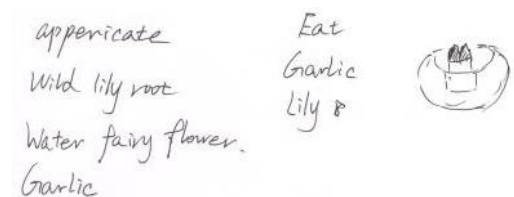 appericate
Wild lily root
Water fairy flower.
Garlic
Eat
Garlic
Lily 8